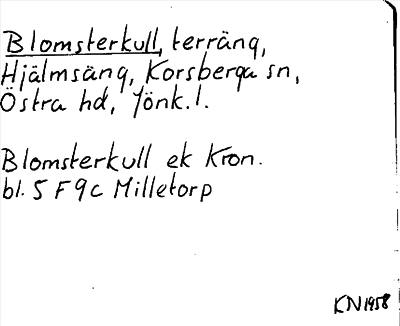 Blomsterkull, terräng,
Hjälmsäng, Korsberga sn,
Östra hd, Jönk.l.
Blomsterkull ek Kron.
bl. 5 F 9 c Milletorp
KN 1958